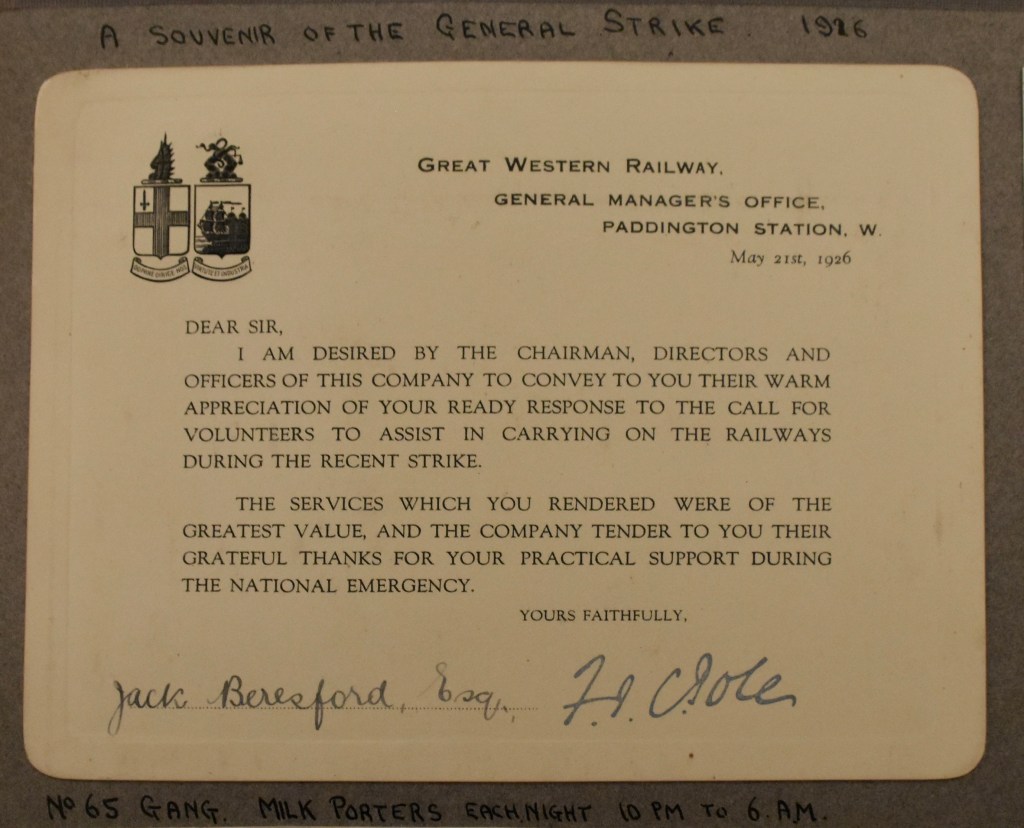 A SOUVENIR OF THE GENERAL STRIKE. 1926
GREAT WESTERN RAILWAY,
GENERAL MANAGER'S OFFICE,
PADDINGTON STATION, W.
May 21st, 1926
DOMINE DIRIGE NOS
VIRTUTE ET INDUSTRIA
DEAR SIR,
I AM DESIRED BY THE CHAIRMAN, DIRECTORS AND
OFFICERS OF THIS COMPANY TO CONVEY TO YOU THEIR WARM
APPRECIATION OF YOUR READY RESPONSE TO THE CALL FOR
VOLUNTEERS TO ASSIST IN CARRYING ON THE RAILWAYS
DURING THE RECENT STRIKE.
THE SERVICES WHICH YOU RENDERED WERE OF THE
GREATEST VALUE, AND THE COMPANY TENDER TO YOU THEIR
GRATEFUL THANKS FOR YOUR PRACTICAL SUPPORT DURING
THE NATIONAL EMERGENCY.
YOURS FAITHFULLY,
Jack Beresford, Esq.,
No 65 GANG. MILK PORTERS EACH NIGHT 10 PM TO 6. A.M.